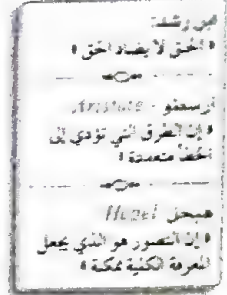 ابن رشد:
« الحق لا يضاد الحق »
أرسطو - Aristote
« إن الطرق التي تؤدي إلى
الخطأ متعددة »
هيجل Hegel
« إن التصور هو الذي يجعل
المعرفة الكلية ممكنة »